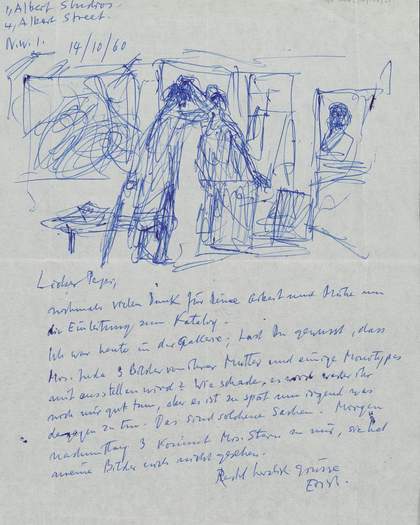 1, Albert Studios.
4, Albert Street.
N.W.1. 14/10/60
Lieber Peyer,
nochmals vielen Dank für Deine Arbeit und Mühe um
die Einleitung zum Katalog.
Ich war heute in der Gallerie; hast Du gewusst, dass
Mrs. 3 Bilder von ihrer Mutter und einige Monotypes
mit ausstellen wird? Wie schade, es weder ihr
noch mir gut tun, aber es ist zu spät um irgend was
dagegen zu tun. Das sind Sachen. Morgen
nachmittag 3 kommt Mrs. Stern zu mir, sie hat
meine Bilder noch nicht gesehen.
Recht herzlich grüsse
Erich.